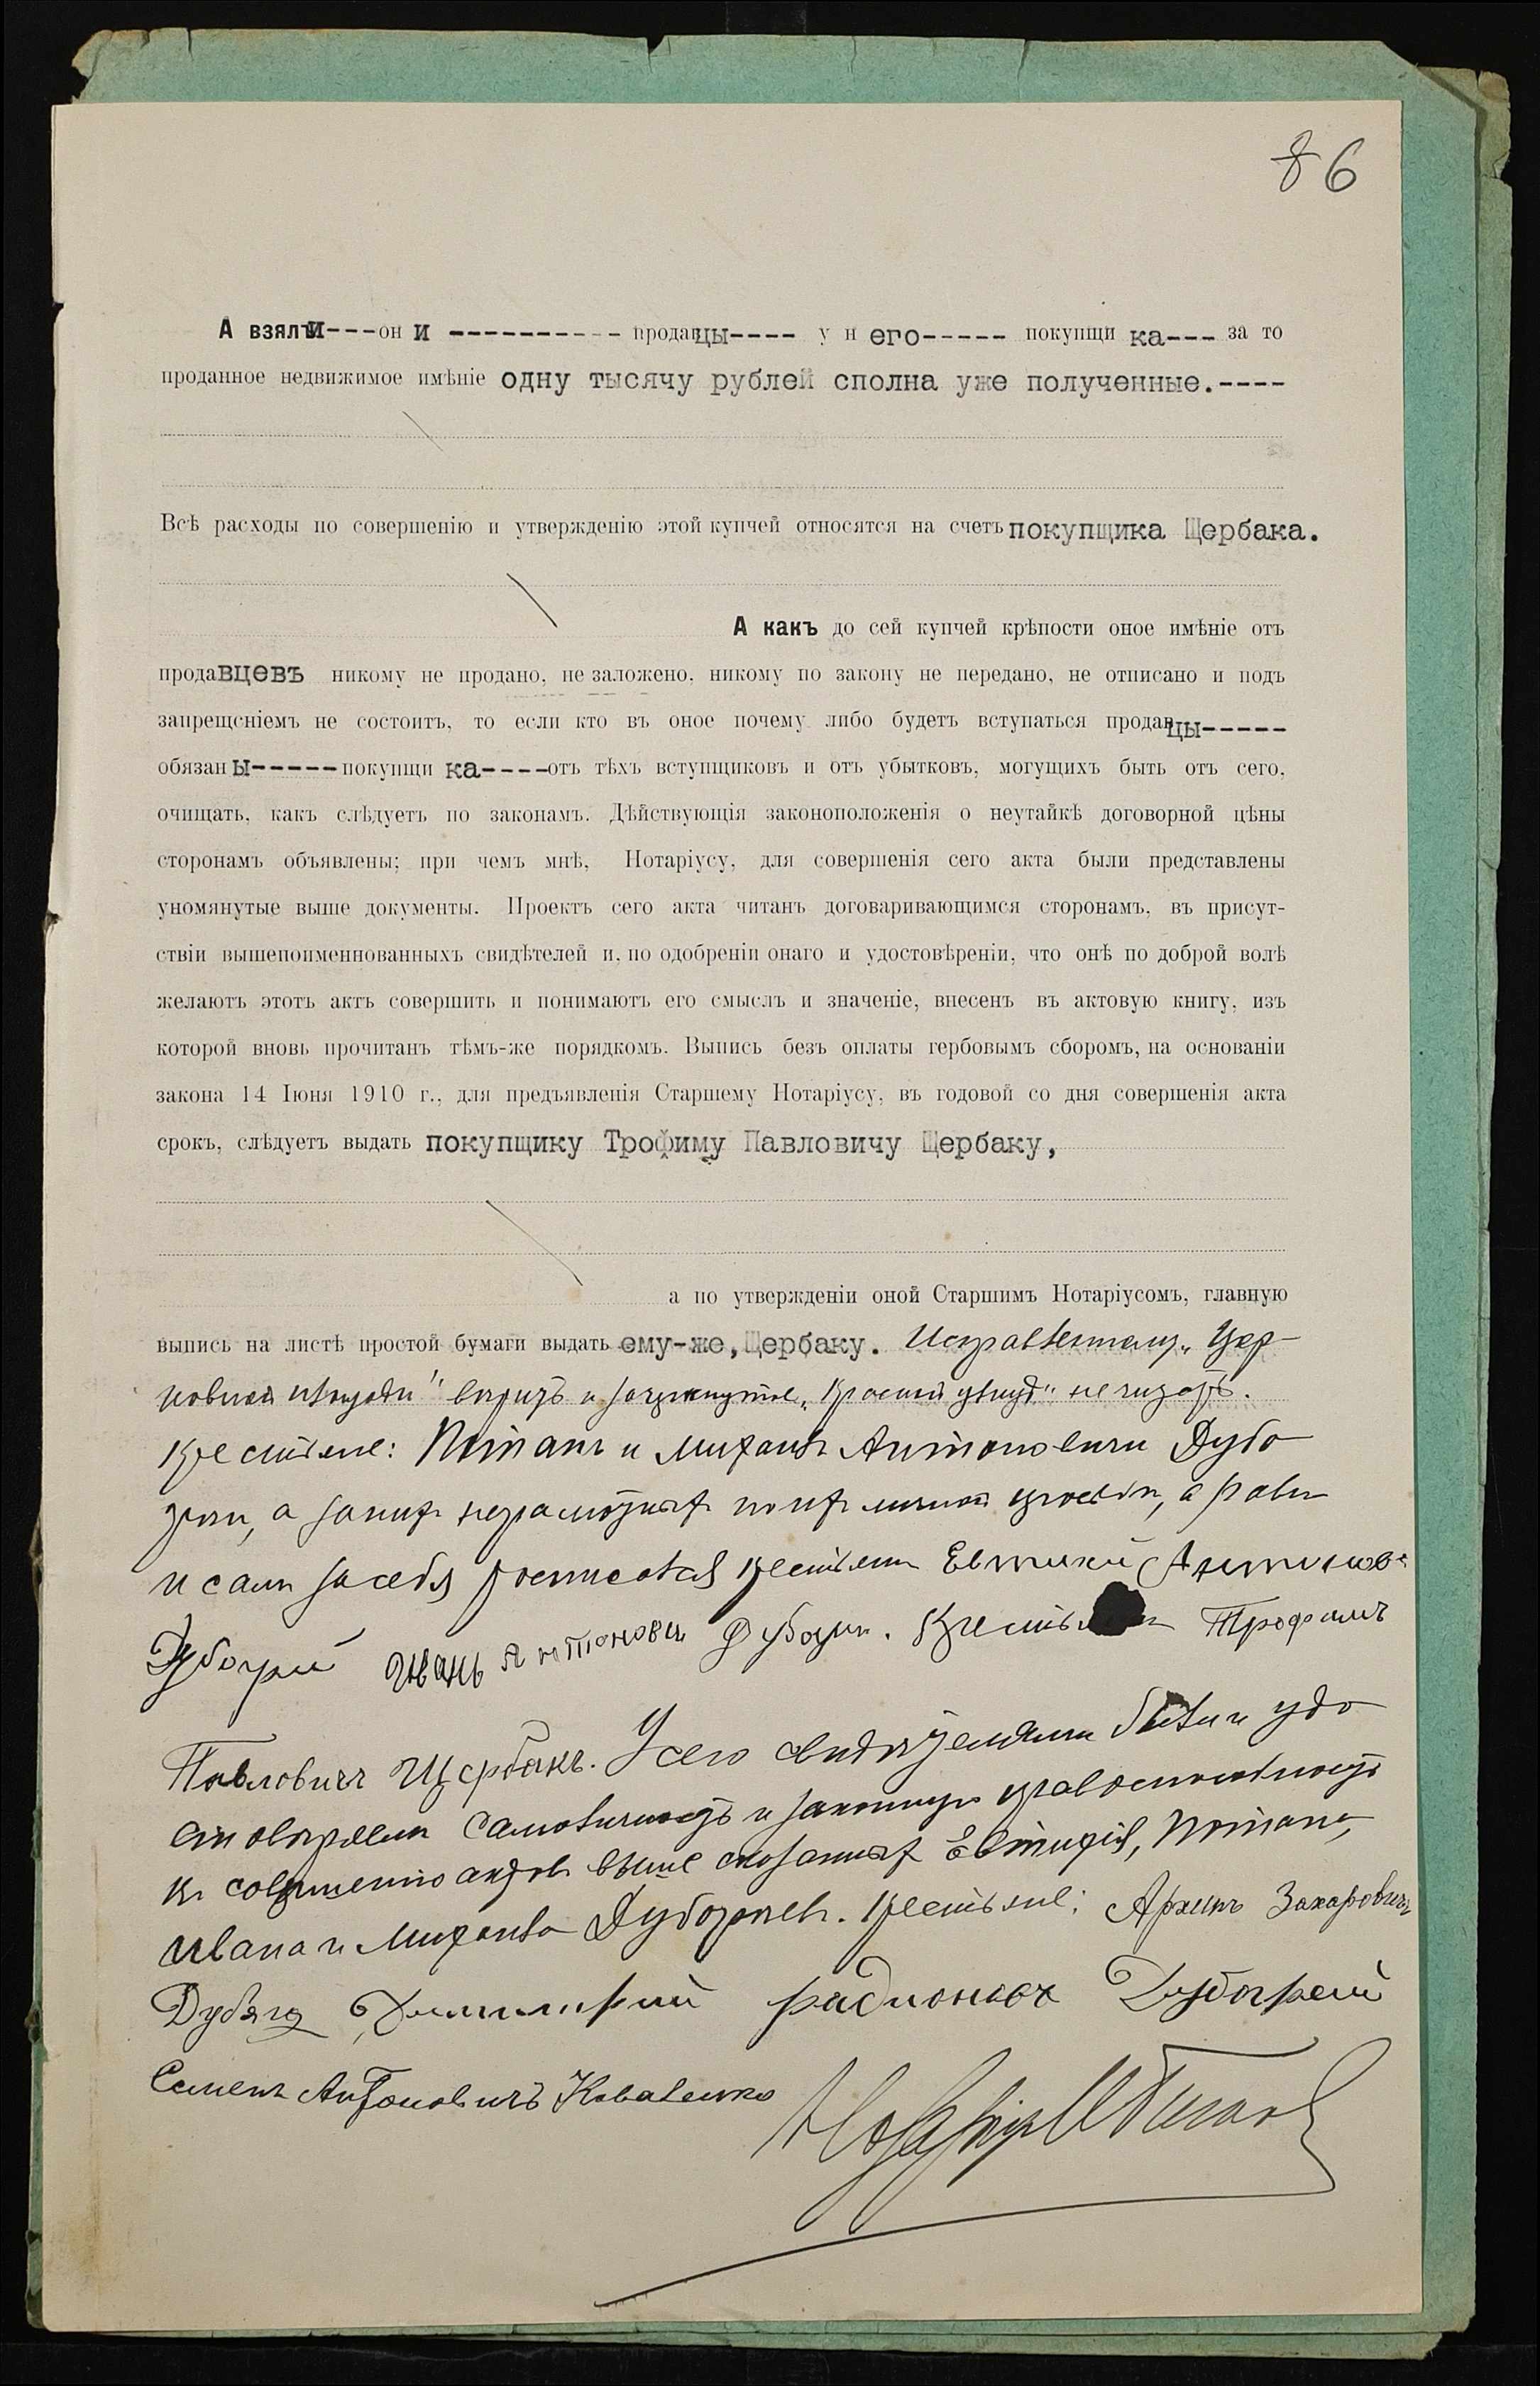 86
А взяли---он и ---------- продавцы---- у него----- покупщика--- за то
проданное недвижимое имѣніе одну тысячу рублей сполна уже полученные.----
Всѣ расходы по совершенію и утвержденію этой купчей относятся на счетъ покупщика Щербака.
А какъ до сей купчей крѣпости оное имѣніе отъ
продавцевъ никому не продано, не заложено, никому по закону не передано, не отписано и подъ
запрещеніемъ не состоитъ, то если кто въ оное почему либо будетъ вступаться продавцы-----
обязаны-----покупщика----отъ тѣхъ вступщиковъ и отъ убытковъ, могущихъ быть отъ сего,
очищать, какъ слѣдуетъ по законамъ. Дѣйствующія законоположенія о неутайкѣ договорной цѣны
сторонамъ объявлены; при чемъ мнѣ, Нотаріусу, для совершенія сего акта были представлены
упомянутые выше документы. Проектъ сего акта читанъ договаривающимся сторонамъ, въ присут-
ствіи вышепоименнованныхъ свидѣтелей и, по одобреніи онаго и удостовѣреніи, что онѣ по доброй волѣ
желаютъ этотъ актъ совершить и понимаютъ его смыслъ и значеніе, внесенъ въ актовую книгу, изъ
которой вновь прочитанъ тѣмъ-же порядкомъ. Выпись безъ оплаты гербовымъ сборомъ, на основаніи
закона 14 Іюня 1910 г., для предъявленія Старшему Нотаріусу, въ годовой со дня совершенія акта
срокъ, слѣдуетъ выдать покупщику Трофиму Павловичу Щербаку,
а по утвержденіи оной Старшимъ Нотаріусомъ, главную
выпись на листѣ простой бумаги выдать ему-же, Щербаку.
не читать.
Крестьяне: Потапъ и Михаилъ Антоновичи Дубо
а за нихъ неграмотныхъ по ихъ личной просьбѣ, а равно
и самъ за себя росписался крестьянинъ Евтихій Антонов
Иванъ Антоновъ Крестьянинъ Трофимъ
Павловичъ Щербакъ. У сего свидѣтелями были и удо
стовѣряемъ самоличность и законную правоспособность
къ совершенію актовъ выше сказанныхъ Евтихія, Потапа,
Ивана и Михаила Крестьяне: Архипъ Захаровичъ
Дубяга, Димитрій Радионовъ
Семенъ Антоновичъ Коваленко
Нотаріусъ